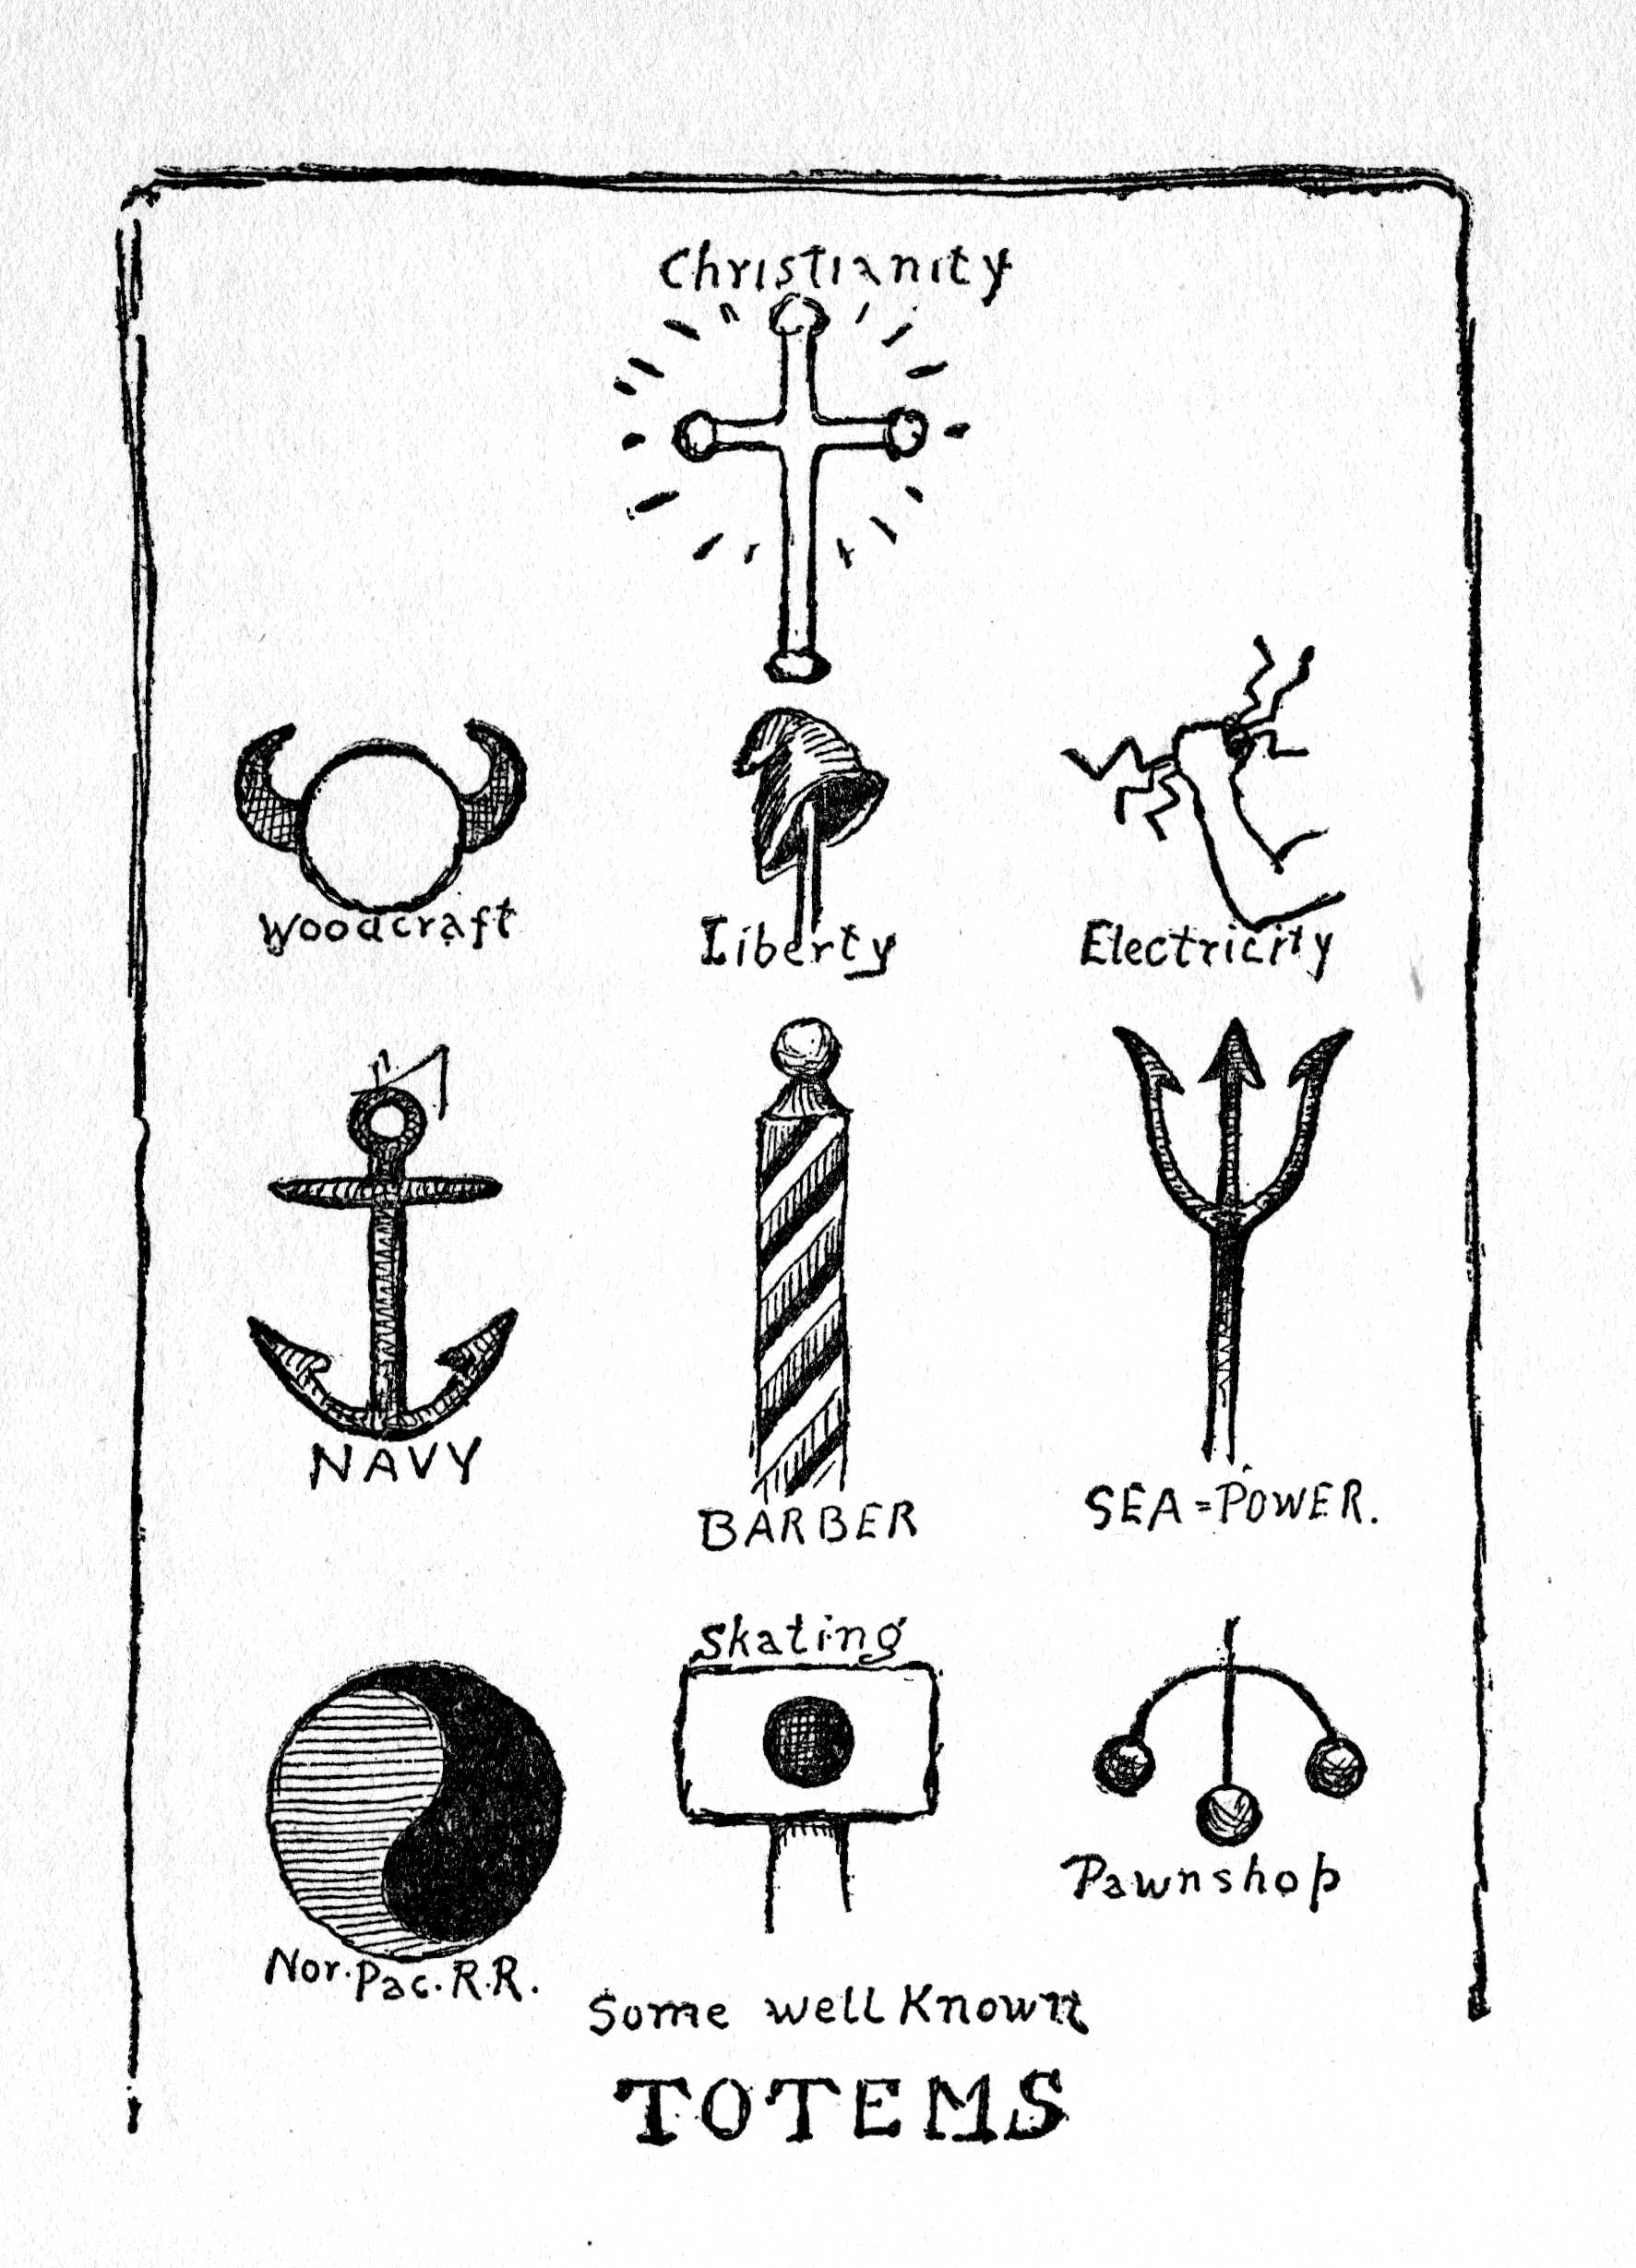 Christianity
Woodcraft
Liberty
Electricity
NAVY
BARBER
SEA=POWER.
Skating
Nor.Pac.R.R.
Pawnshop
Some well Known
TOTEMS